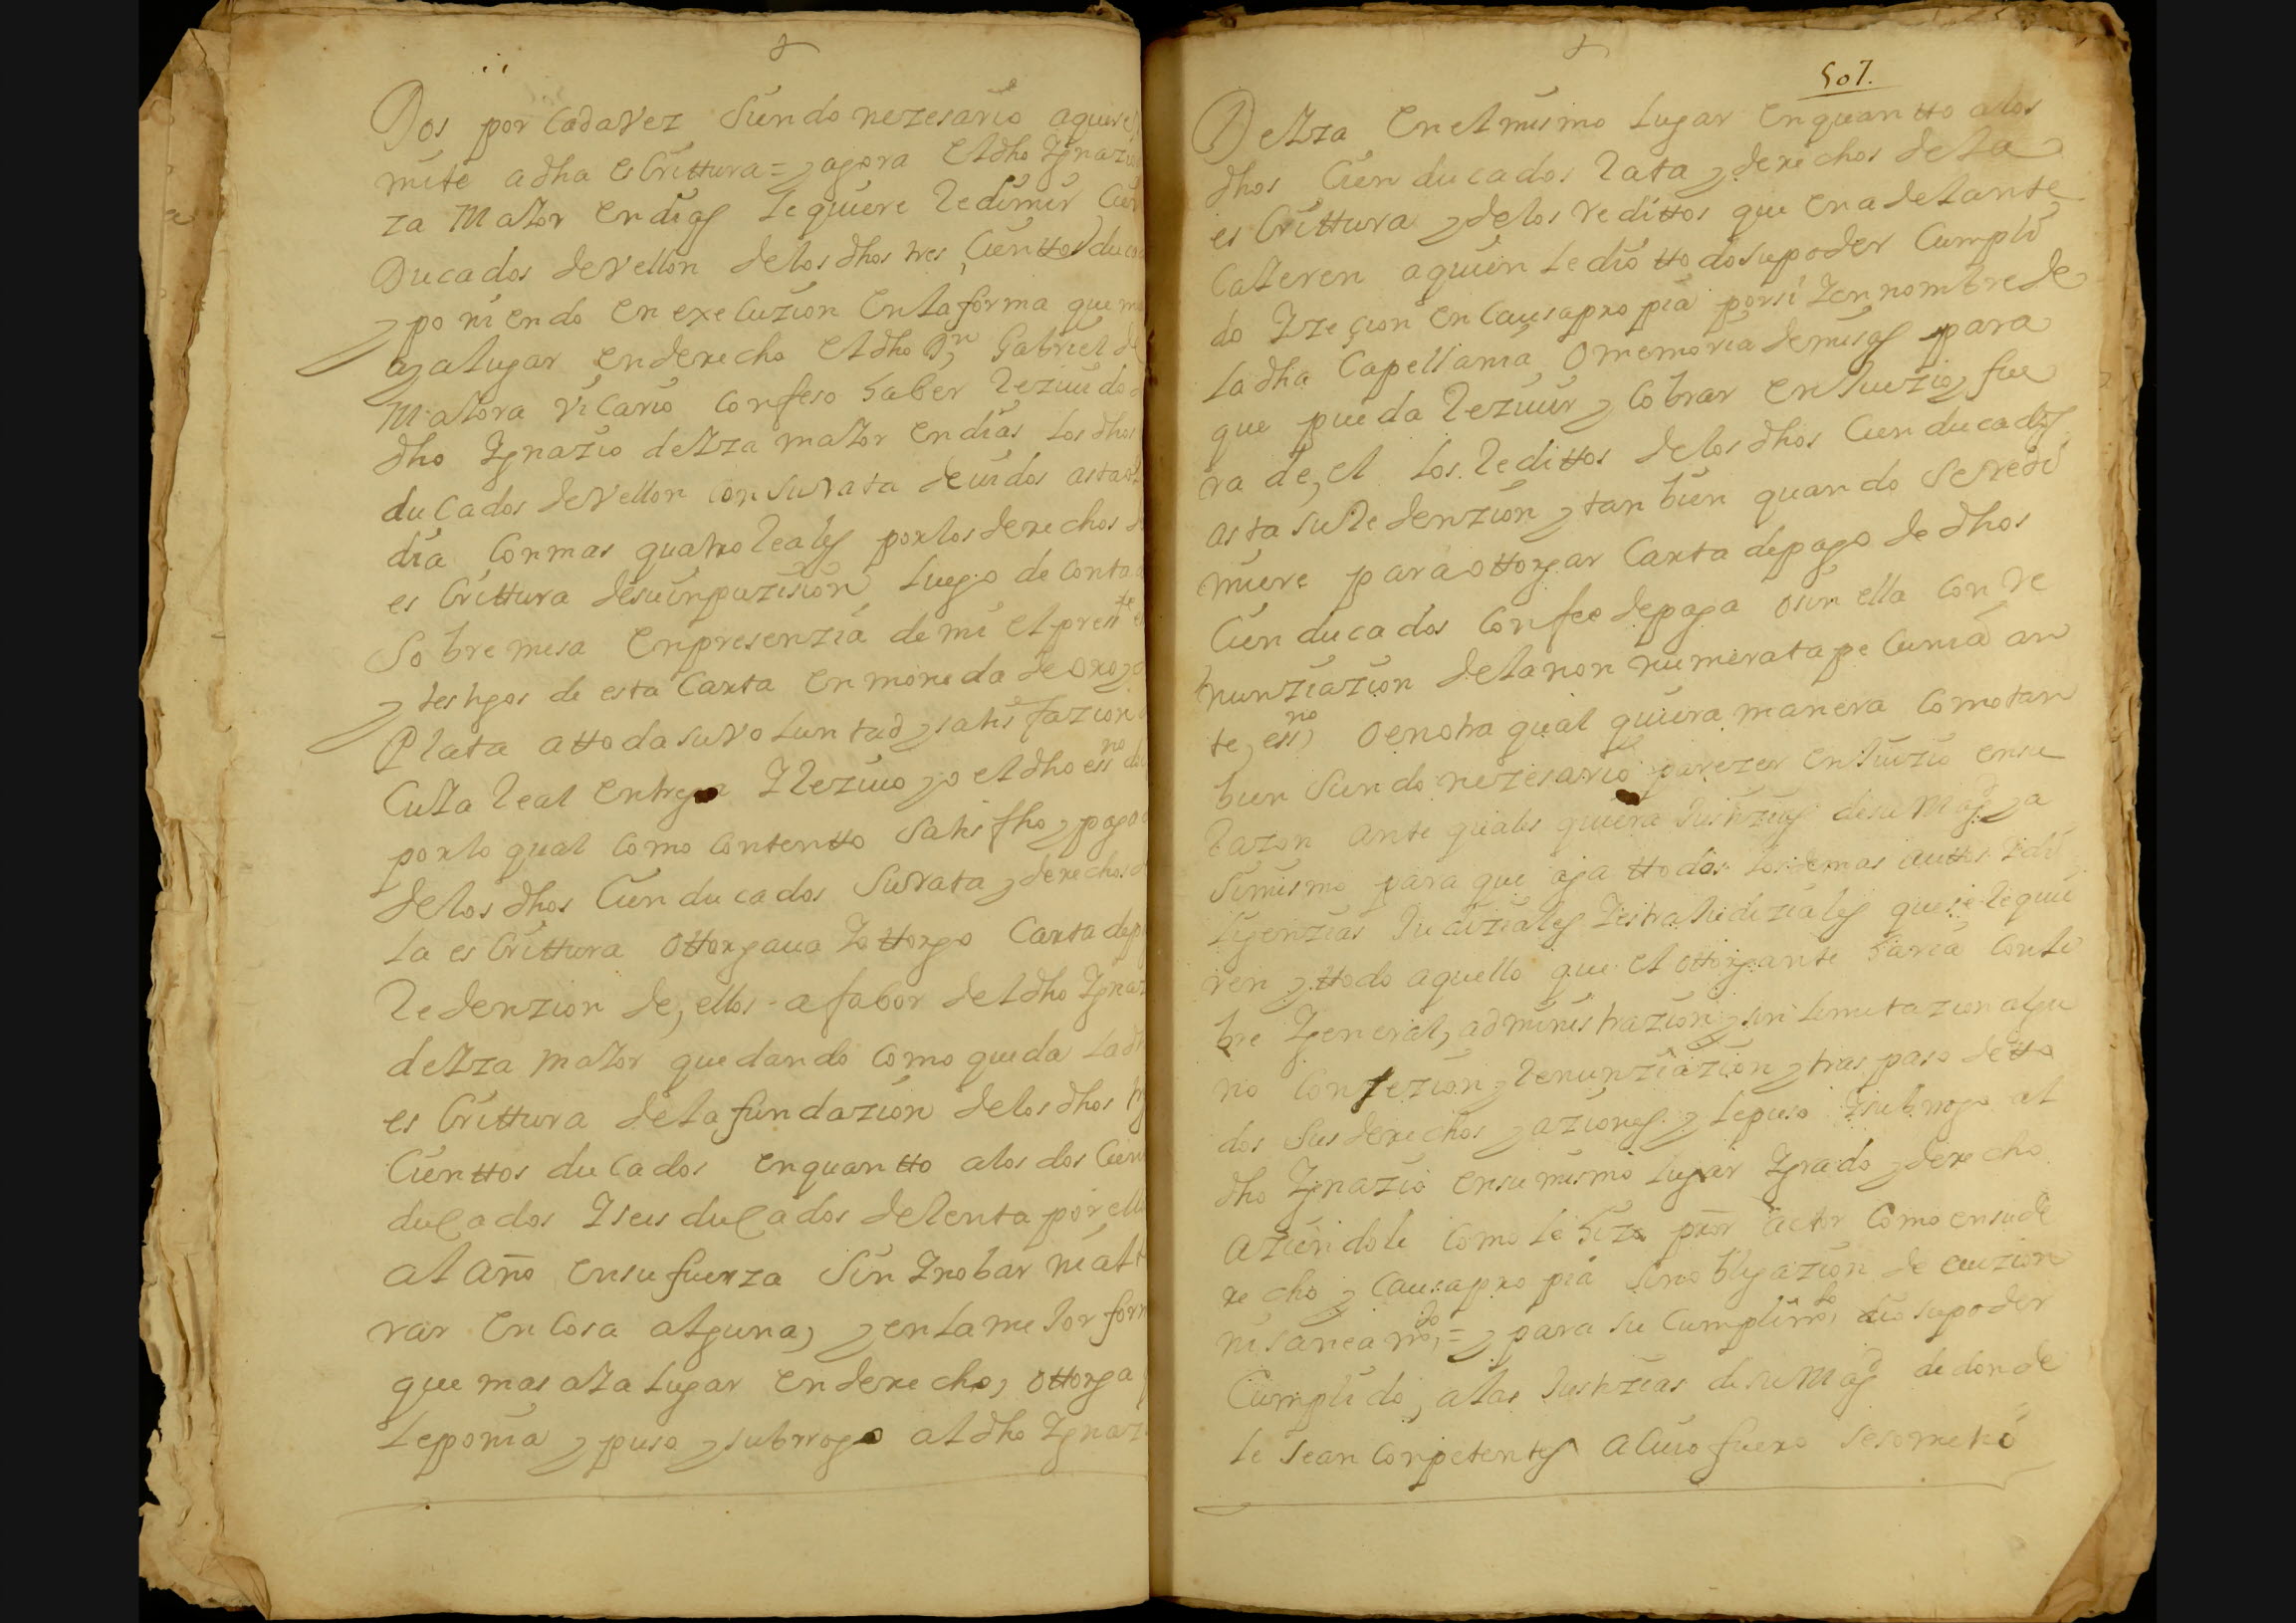 Dos por Cadavez Siendo nezesario aquere
mite adha esCrittura = y agora el dho Ygnazio
za Maior en dias le quiere Redimir Cien
Ducados de Vellon delos dhos tres Cienttos duca
y poniendo en execuzion en la forma que m
aya lugar en derecho el dho Dn Gabriel de
Maiora ViCario Confeso haber Rezivido
dho Ygnazio de Yza maior en dias los dhos
duCados de Vellon con su rata devidos asta
dia Con mas quatro Reales por los derechos
esCrittura de su inpuzision luego de Conta
Sobre mesa en presenzia de mi el presste
y testigos de esta Carta en moneda de oro y
Plata attoda su voluntad y satisfazion
Cuia Real entrega Y Rezivo yo el dho essno doi
por lo qual Como Contentto Satisfho y pago
delos dhos Cien ducados Su rata y derechos
la esCrittura ottorgava Y ottorgo Carta de p
Redenzion de, ellos a fabor del dho Ygnaz
de Yza maior quedando Como queda la dh
esCrittura de la fundazion delos dhos tr
Cienttos duCados en quantto alos dos Cien
duCados Y seis duCados de Renta por ello
al año en su fuerza Sin Ynobar ni alt
rar en Cosa alguna, y en la mejor form
que mas aia lugar en derecho, ottorga
le ponia y puso y subrrogo al dho Ygnazi
507.
De Yza en el mismo lugar en quantto alos
dhos Cien ducados Rata y derechos de la
esCrittura y delos redittos que en adelante
Caieren a quien le dio ttodo su poder Cumpli
do Y zeçion en Causa propia por si Y en nombre de
la dha Capellania O memoria de misas para
que pueda Rezivir y Cobrar en Juizio y fue
ra de, el los Redittos delos dhos Cien ducados
asta su Redenzion y tan bien quando se redi
miere para ottorgar Carta de pago de dhos
Cien ducados Con fee de paga o sin ella Con re
nunziazion de la non numerata peCunia an
te, essno, O en otra qual quiera manera Como tan
bien Siendo nezesario parezer en Juizio en su
Razon ante quales quiera Justizias de su Magd y a
Simismo para que aga ttodos los demas auttos Y dili
lijenzias Judiziales Y estrajudiziales que se requie
ren y ttodo aquello que el ottorgante haria Con li
bre Y general, administrazion y sin limitazion algu
na Con zezion y Renunziazion y traspaso de tto
dos Sus derechos y aziones y le puso Y subrrogo al
dho Ygnazio en su mismo lugar Y grado y derecho
aziendole Como le hizo pror actor Como en su de
recho y Causa propia Sin obligazion de evizion
ni saneamto, = y para su Cumplimto, dio su poder
Cumplido, alas Justizias de su Magd de donde
le sean Conpetentes a Cuio fuero se sometio